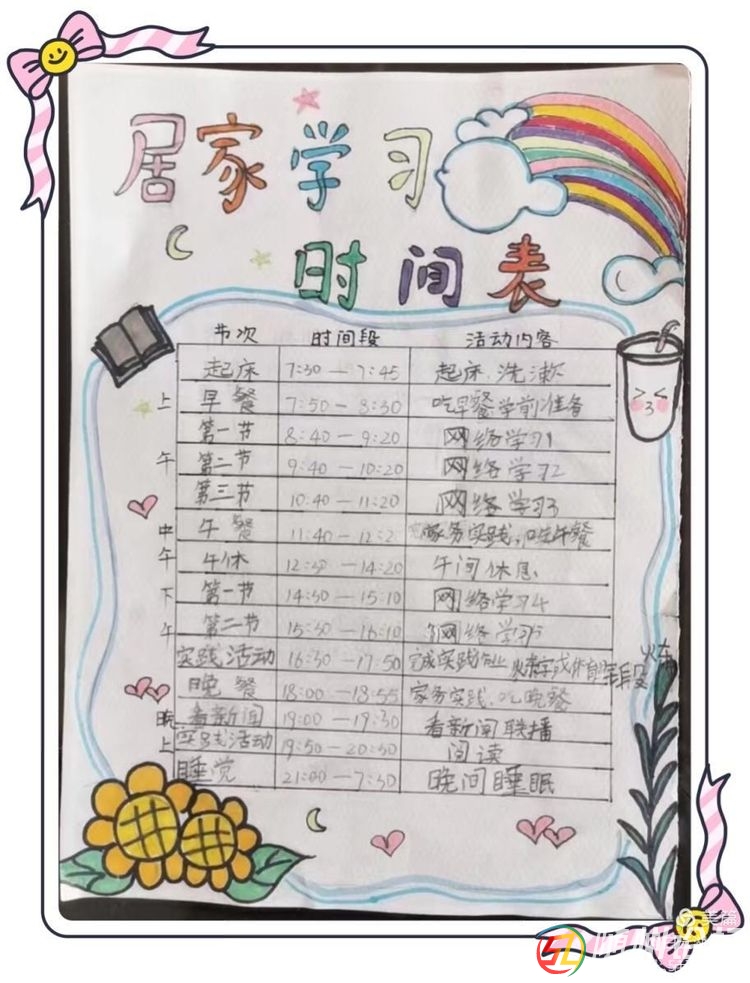 居家学习
时间表
节次 时间段 活动内容
起床 7:30—7:45 起床.洗漱
上 早餐 7:50—8:30 吃早餐学前准备
第一节 8:40—9:20 网络学习1
午 第二节 9:40—10:20 网络学习2
第三节 10:40—11:20 网络学习3
中 午餐 11:40— 家务实践,吃午餐
午 午休 —14:20 午间休息
下 第一节 14:30—15:10 网络学习4
午 第二节 15:30—16:10 网络学习5
实践活动 16:30—17:50 完成实践作业
晚餐 18:00—18:55 家务实践.吃晚餐
晚 看新闻 19:00—19:30 看新闻联播
上 实践活动 19:50—20:50 阅读
睡觉 21:00—7:30 晚间睡眠
美篇